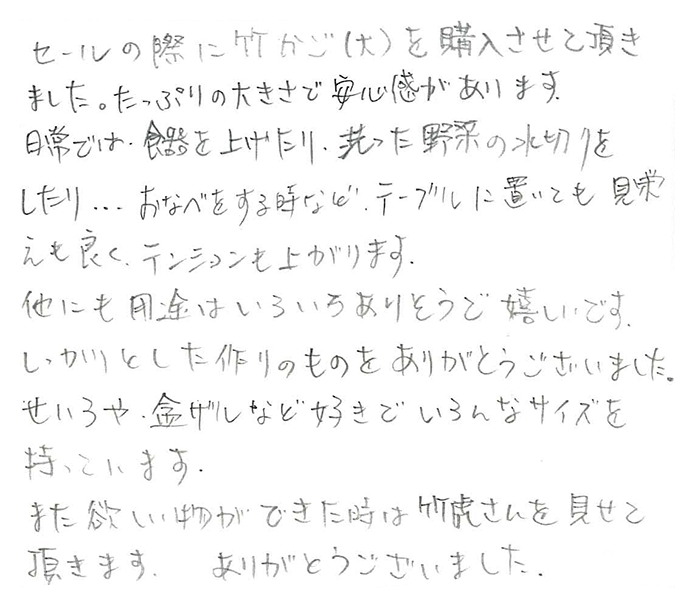 セールの際に竹かご(大)を購入させて頂き
ました。たっぷりの大きさで安心感があります.
日常では、食器を上げたり、洗った野菜の水切りを
したり... おなべをする時など、テーブルに置いても 見栄
えも良く、テンションも上がります.
他にも用途はいろいろありそうで嬉しいです.
しっかりとした作りのものをありがとうございました。
せいろや、盆ザルなど好きでいろんなサイズを
持っています.
また欲しい物ができた時は竹虎さんを見せて
頂きます. ありがとうございました.